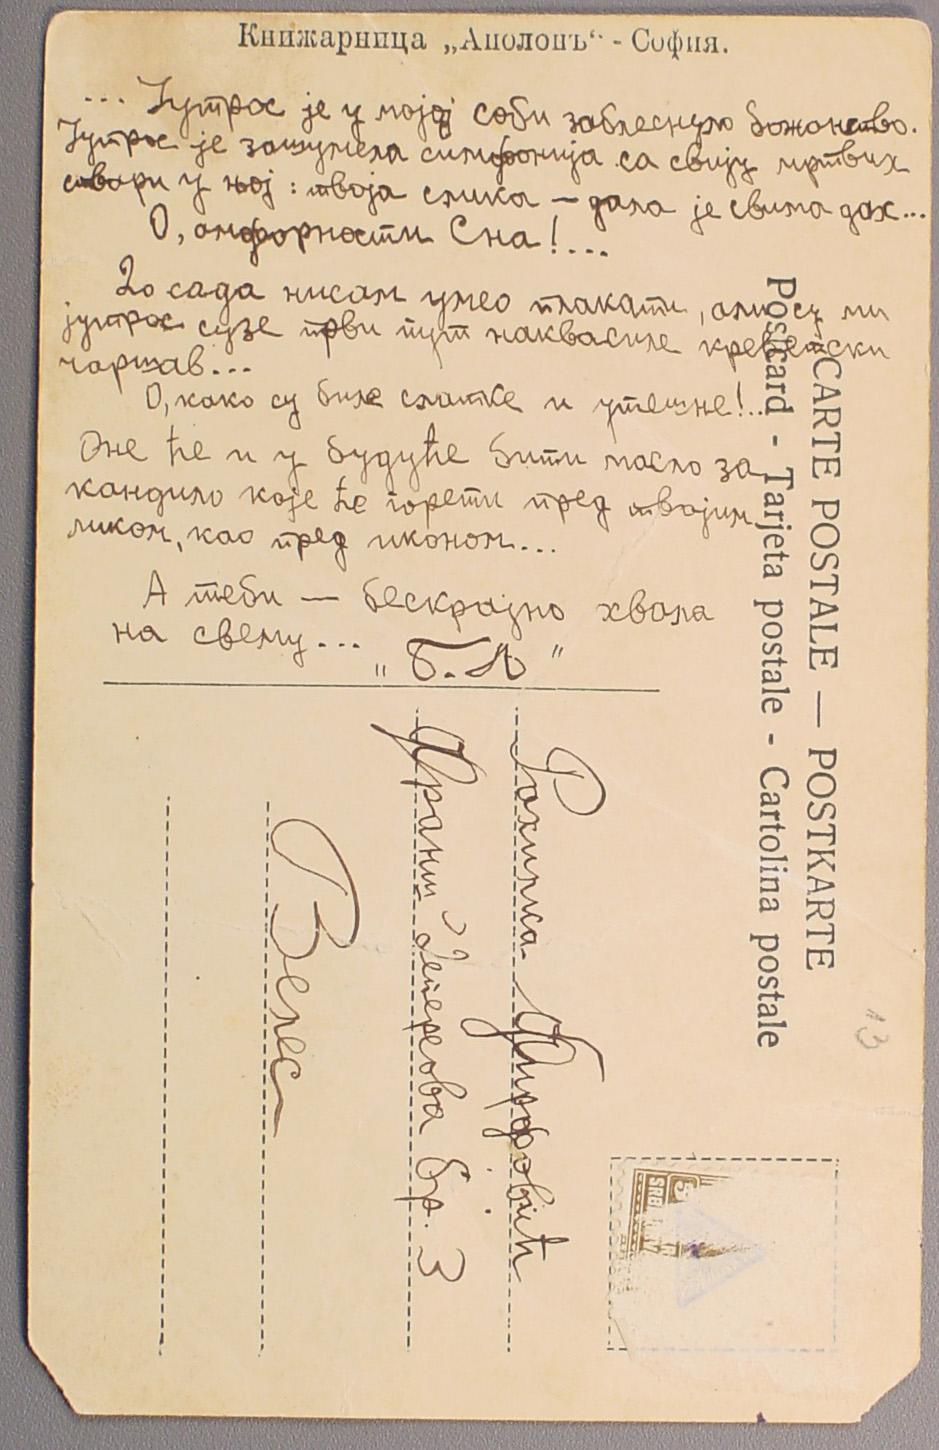 Книжарница „Аполонъ“ - София.
... Јутрос је у мојој соби заблеснуло божанство.
Јутрос је зашумела симфонија са свију мртвих
ствари у њој: твоја слика — дала је свима дах...
О, амфорности Сна!...
До сада нисам умео плакати, али су ми
јутрос сузе први пут наквасиле креветски
чаршав...
О, како су биле слатке и утешне!...
Оне ће и у будуће бити масло за
кандило које ће горети пред твојим
ликом, као пред иконом...
А теби — бескрајно хвала
на свему...
CARTE POSTALE — POSTKARTE
Postcard - Tarjeta postale - Cartolina postale
Франш Деперова бр. 3
Велес
13
5